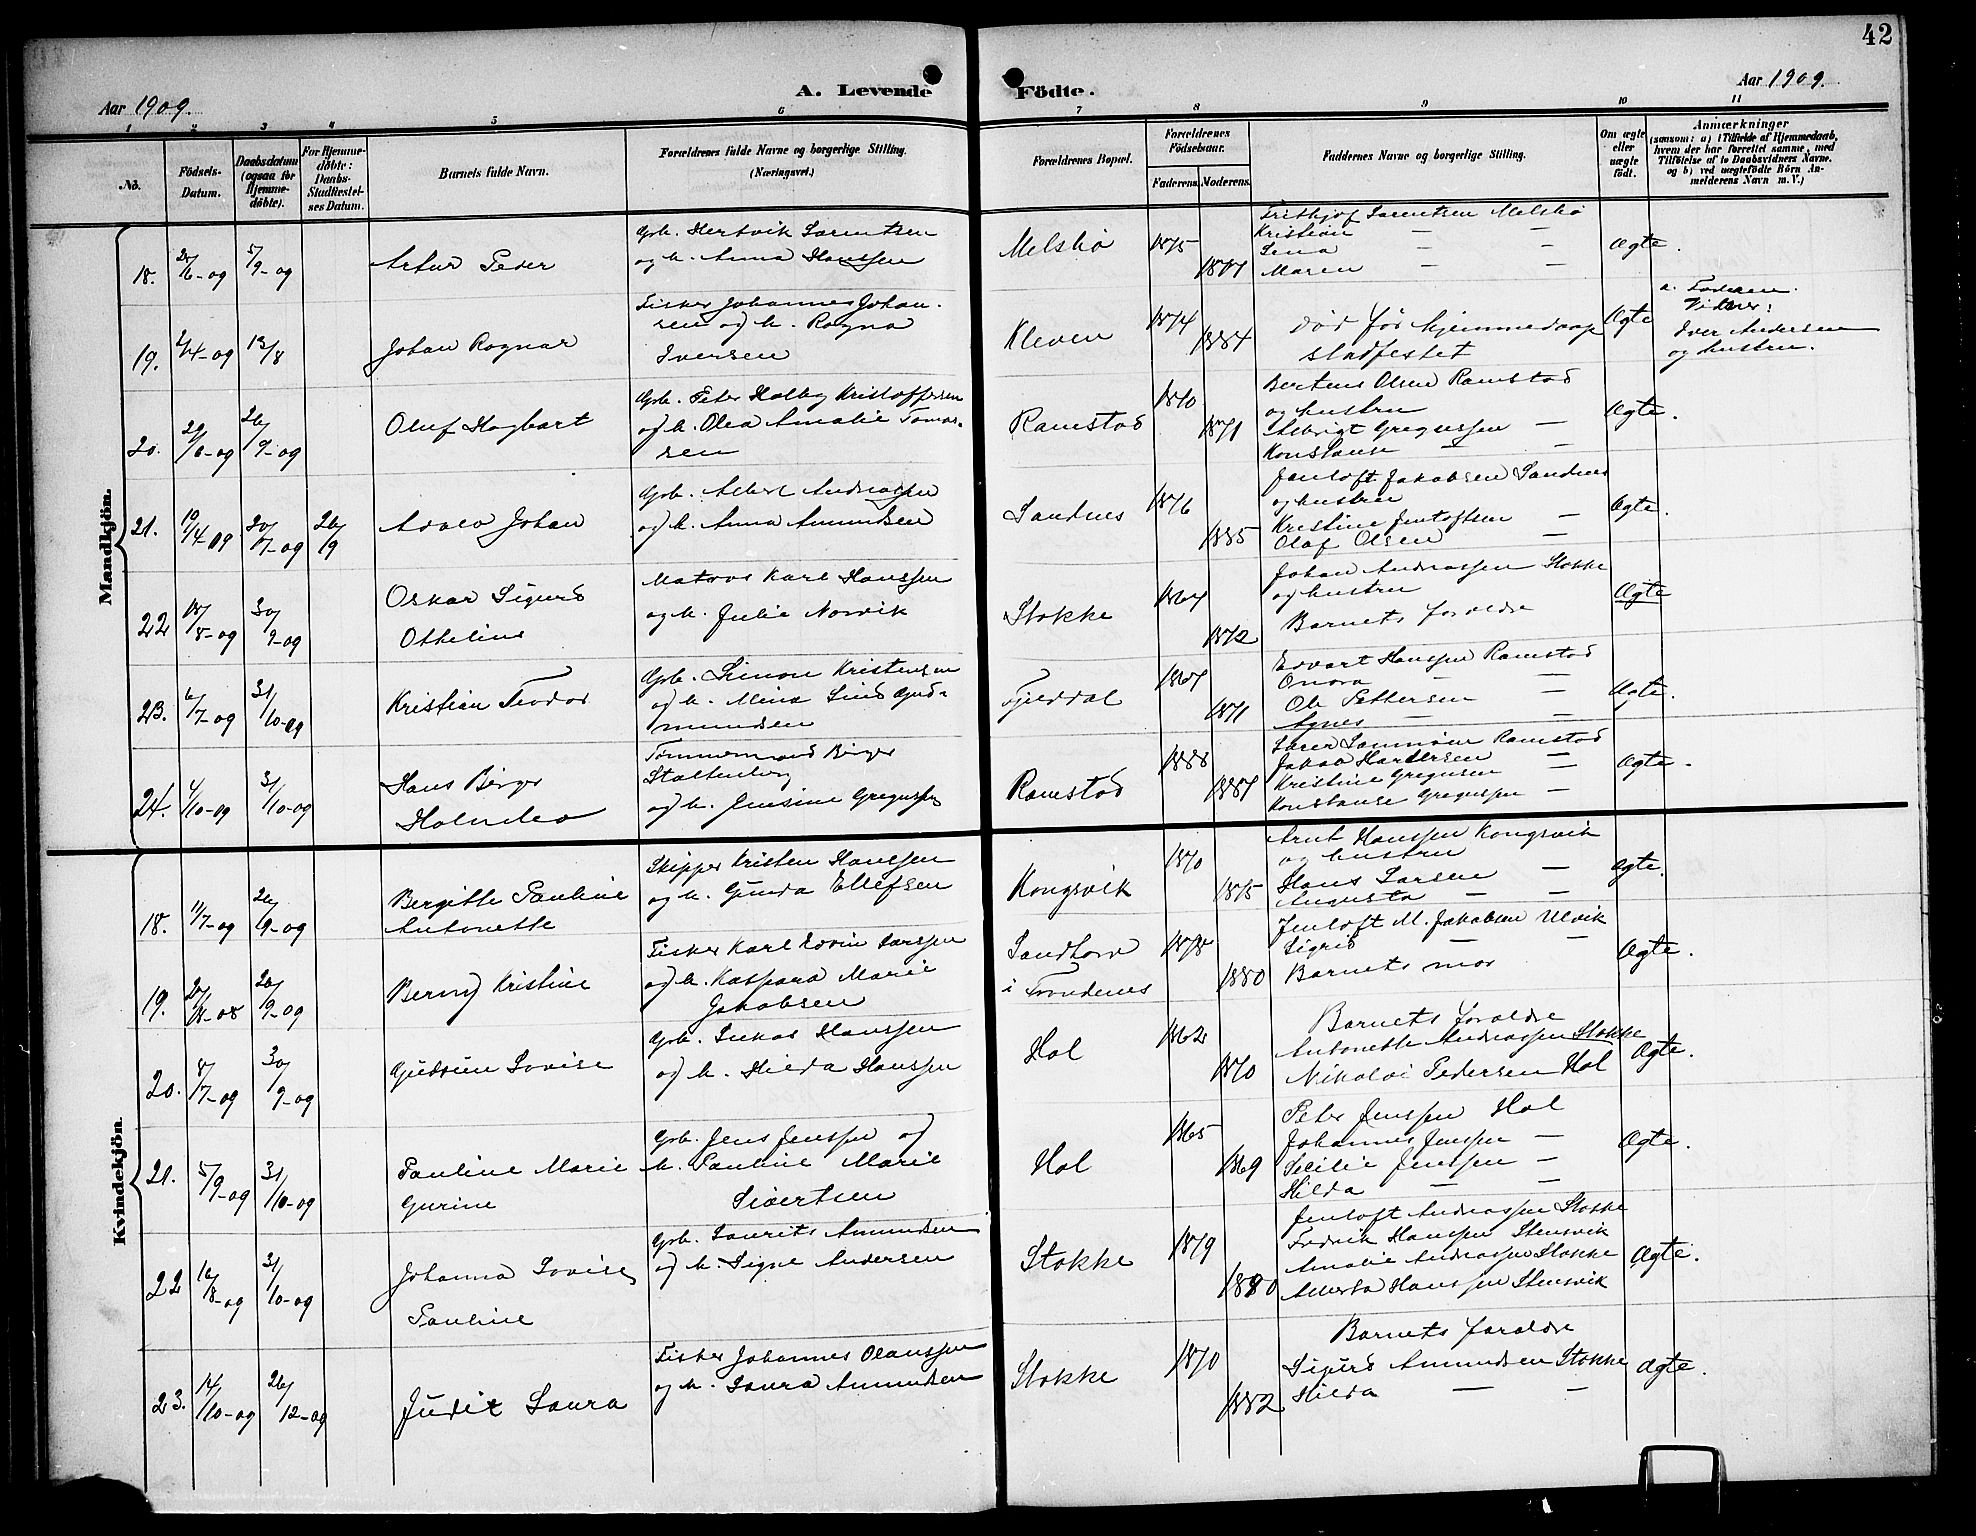 42
Aar 1909.
A. Levende
Födte.
Aar 1909.
1 2 3 4 5 6 7 8 9 10 11
No.
Födsels-
Datum.
Daabsdatum
(ogsaa for
Hjemme-
döbte).
For Hjemme-
döbte:
Daabs-
Stadfæstel-
ses Datum.
Barnets fulde Navn.
Forældrenes fulde Navne og borgerlige Stilling.
(Næringsvei.)
Forældrenes Bopæl.
Forældrenes
Födselsaar.
Faderens. Moderens.
Faddernes Navne og borgerlige Stilling.
Om ægte
eller
uægte
födt.
Anmærkninger
(saasom: a) i Tilfælde af Hjemmedaab,
hvem der har forrettet samme, med
Tilföielse af to Daabsvidners Navne,
og b) ved uægtefödte Börn An-
melderens Navn m. V.)
Mandkjön.
18.
5/9-09
Artur Peder
Grb. Hertvik Lorentsen
og h. Anna Hanssen
Melshö
1875
Frithjof Lorentsen Melshö
Kristian — —
Lina — —
Maren — —
Ægte.
19.
Johan Ragnar
Fisker Johannes Johan-
sen og h. Ragna
Iversen
Kleven
1874
1884
Död för hjemmedaap
stadfestet
Ægte
a. Faderen.
Vidner:
Iver Andersen
og hustru.
20.
29/6-09
26/9-09
Oluf Hagbart
Grb. Peter Holby Kristoffersen
og h. Olea Amalie Tomas-
sen
Ramstad
1870
1871
Berteus Olsen Ramstad
og hustru
Albrigt Gregussen —
Konstanse — —
Ægte.
21.
10/4-09
20/7-09
26/9
Johan
Grb. Albert Andreassen
og h. Anna Amundsen
Sandnes
1876
1885
Jentoft Jakobsen Sandnes
og hustru
Kristine Jentoftsen —
Olaf Olsen —
Ægte.
22
18/8-09
30/9-09
Oskar Sigurd
Othelius
Matros Karl Hanssen
og h. Julie Norvik
Stokke
1867
1872
Johan Andreassen Stokke
og hustru
Barnets foraldre
Ægte
23.
6/7-09
31/10-09
Kristian Teodor
Grb. Simon Kristensen
og h. Mina Lind Gud-
mundsen
Fjelddal
1867
1871
Edvart Hanssen Ramstad
Onora — —
Ole Pettersen —
Agnes — —
Ægte.
24.
31/10-09
Hans Birger
Tømmermand Birger
Stoltenberg
og h. Jensine Gregussen
Ramstad
1888
1887
Ramstad
Kristine Gregusen —
Konstanse Gregussen —
Ægte.
Kvindekjön.
18.
11/7-09
26/9-09
Bergitte Pauline
Antonette
Skipper Kristen Hanssen
og h. Gunda Ellefsen
Kongsvik
1870
1875
Arnt Hanssen Kongsvik
og hustru
Hans Larsen —
Augusta — —
Ægte.
19.
26/9-09
Kristine
Fisker Karl Edvin Larssen
og h. Kaspara Marie
Jakobsen
Sandtorv
i Trondenes
1878
1880
Jentoft M. Jakobsen Ulvik
Sigrid — —
Barnets mor
Ægte.
20.
8/7-09
30/9-09
Gudrun Lovise
Grb. Lukas Hanssen
og h. Hilda Hanssen
Hol
1862
1870
Barnets foraldre
Antonette Andreassen Stokke
Nikolai Pedersen Hol
Ægte.
21.
5/9-09
31/10-09
Pauline Marie
Gurine
Grb. Jens Jenssen og
h. Pauline Marie
Sivertsen
Hol
1865
1869
Peter Jenssen Hol
Johannes Jenssen —
Sesilie Jenssen —
Hilda — —
Ægte.
22
16/8-09
31/10-09
Johanna Lovise
Pauline
Grb. Laurits Amundsen
og h. Signe Andersen
Stokke
1879
1880
Jentoft Andreassen Stokke
Fredrik Hanssen Stensvik
Amalie Andreassen Stokke
Alberta Hanssen Stensvik
Ægte.
23.
14/10-09
26/12-09
Judit Laura
Fisker Johannes Olaussen
og h. Laura Amundsen
Stokke
1870
1882
Barnets foraldre
Sigurd Amundsen Stokke
Hilda — —
Ægte.